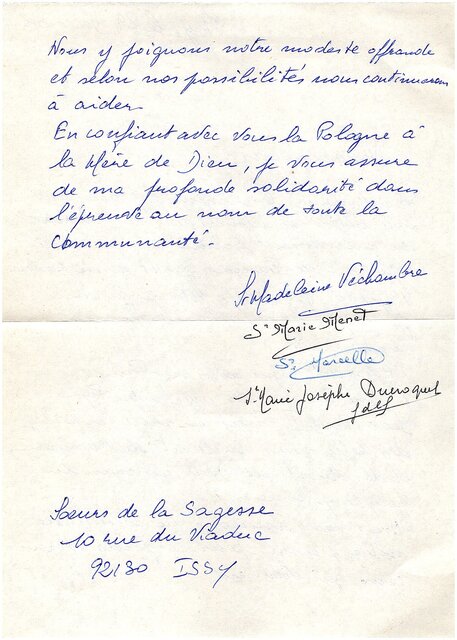 Nous y joignons notre modeste offrande
et selon nos possibilités nous continuerons
à aider.
En confiant avec vous la Pologne à
la Mère de Dieu, je vous assure
de ma profonde solidarité dans
l'épreuve au nom de toute la
Communauté.
Sr Madeleine Véchambre
Sr Marie Menet
Sr Marcelle
Sr Marie Josèphe Ducroquet
fdls
Sœurs de la Sagesse
10 rue du Viaduc
92130 ISSY